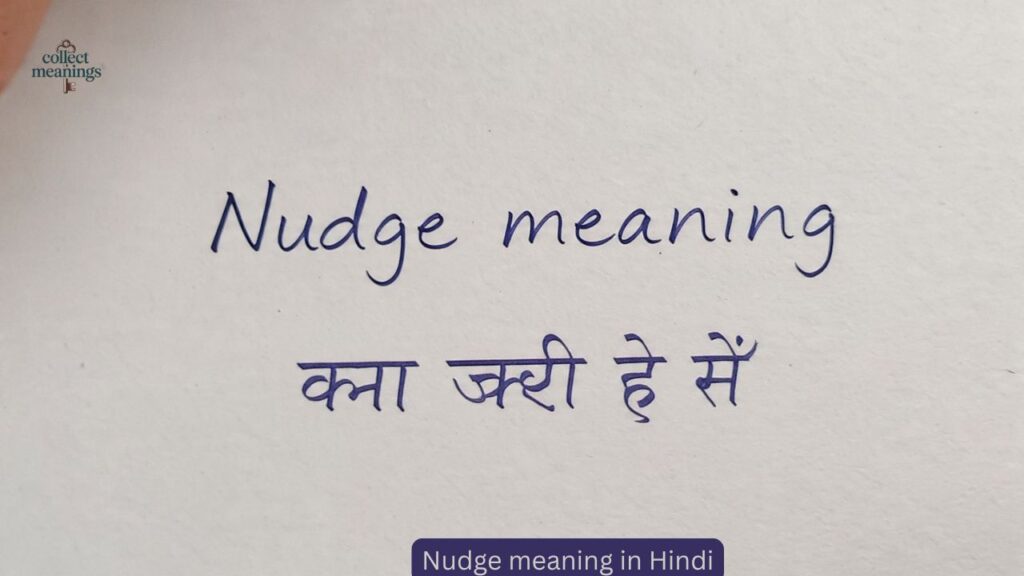 collect
meanings
Nudge meaning
हे सें
Nudge meaning in Hindi